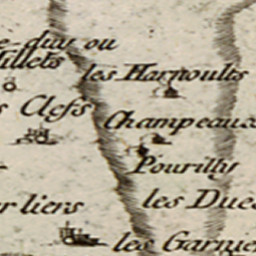 e duy ou
Millets
les Harnoults
s Clefs
Champeaux
Pourilly
er liens
les Due
les Garnie